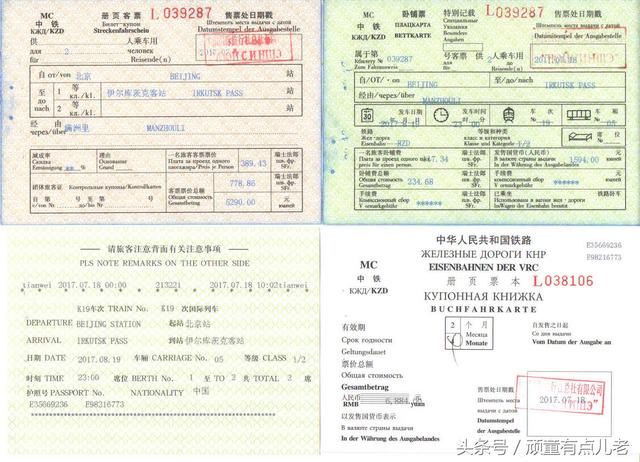 MC 册页客票 L 039287 售票处日期戳
中铁 Билет/купон Штемпель места выдачи с датой
КЖД/KZD Streckenfahrschein Datumstempel der Ausgabestelle
供 人乘车用
для 2 человек
für Reisende(n)
2017.07.18
自/от/von 北京 BEIJING 站
经至 1 等
до кл./kl.
nach 2 等
кл./kl.
伊尔库茨克客站 IRKUTSK PASS 站
经由
через/über 满洲里 MANZHOULI
减成率 理由 一名旅客客票票价
Скидка Основание Плата за проезд одного
Ermässigung Grund пассажира/Preis je Person
389.43 瑞士法郎
шв. фр.
SFr.
778.86 瑞士法郎
шв. фр.
SFr.
团体旅客证 Контрольные купоны/Kontrollkarten
客票票价总额
Общая стоимость
Gesamtbetrag
5290.00 元
юаней
MC 卧铺票 特别记载 L 039287 售票处日期戳
中铁 ПЛАЦКАРТА Специальные Штемпель места выдачи с датой
КЖД/KZD BETTKARTE указания Datumstempel der Ausgabestelle
Besondere
Angaben
属于第 039287 号客票 2 人乘车用
К билету № для человек
Zum Fahrausweis für Reisende(n)
2017.07.18
自/ОТ/von BEIJING 至/до/nach IRKUTSK PASS
经由/через/über MANZHOULI
日期 发车时间 车次 车厢 席位
30 23:00 19 05
铁路 等级和种类
Жел-дорога класс и категория
Eisenbahn RZD Klasse und Kategorie 1/2
一名旅客卧铺费 瑞士法郎 发售国货币(人民币)
Плата за проезд одного шв. фр. В валюте страны выдачи
пассажира/Preis je Person 117.34 SFr. In der Währung des Ausgabelandes
1594.00 元
юаней
卧铺费总额 瑞士法郎 已乘坐
Общая стоимость шв. фр. Использован
Gesamtbetrag 234.68 SFr. Benutzt
手续费 瑞士法郎 手续费 元 铁路卧车
комиссионный сбор шв. фр. комиссионный сбор юаней Использован в вагоне жел - дороги
V omarkgebühr ****** SFr. V omarkgebühr ****** Im Wagen der Eisenbahn benutzt
请旅客注意背面有关注意事项
PLS NOTE REMARKS ON THE OTHER SIDE
tianwei 2017.07.18 00:00 213221 2017.07.18 10:02tianwei
K19车次 TRAIN No. K19 次国际列车
DEPARTURE BEIJING STATION 起站 北京站
ARRIVAL IRKUTSK PASS 到站 伊尔库茨克客站
日期 DATE 2017.08.19 车厢 CARRIAGE No. 05 等级 CLASS 1/2
时刻 TIME 23:00 席位 BERTH No. 1 至TO 2 共 TOTAL 2 席
护照号 PASSPORT No. NATIONALITY 中国
E35669236 E98316773
中华人民共和国铁路 E35669236
ЖЕЛЕЗНЫЕ ДОРОГИ КНР E98216773
MC EISENBAHNEN DER VRC
中铁 册页票本 L038106
КЖД/KZD КУПОННАЯ КНИЖКА
BUCHFAHRKARTE
有效期 2 个月 自发售之日起
Срок годности Месяца Со дня выдачи
Geltungsdauer Monate Vom Datum der Ausgabe an
票价总额
Общая стоимость
Gesamtbetrag
人民币 元
RMB 6,884 yuan
以发售国货币表示
В валюте страны выдачи
In der Währung des Ausgabelandes
售票处日期戳
Штемпель места
выдачи с датой
Datumstempel
der Ausgabestelle
2017.07.18
头条号/顽童有点儿老